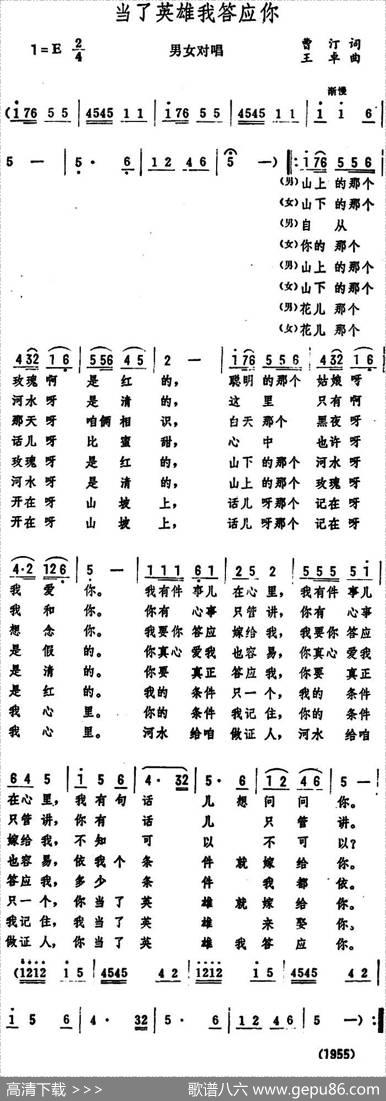 当了英雄我答应你
1=E 2/4 男女对唱 曹汀 词
王卓 曲
渐慢
(i76 55 | 4545 11 | i76 55 | 4545 11 | i i 6
5 — | 5· 6 | 12 46 | 5 —) ‖: i76 556
(男)山上的那个
(女)山下的那个
(男)自从
(女)你的那个
(男)山上的那个
(女)山下的那个
(男)花儿那个
(女)花儿那个
432 16 | 556 45 | 2 — | i76 556 | 432 16
玫瑰啊 是红的, 聪明的那个 姑娘呀
河水呀 是清的, 这里 只有啊
那天呀 咱俩相识, 白天那个 黑夜呀
话儿呀 比蜜甜, 心中 也许呀
玫瑰呀 是红的, 山下的那个 河水呀
河水呀 是清的, 山上的那个 玫瑰呀
开在呀 山坡上, 话儿呀那个 记在呀
开在呀 山坡上, 话儿呀那个 记在呀
4·2 126 | 5 — | 111 61 | 2 45 | 555 5i
我爱你。 我有件事儿 在心里, 我有件事儿
我和你。 你有心事 只管讲, 你有心事
想念你。 我要你答应 嫁给我, 我要你答应
是假的。 你真心爱我 也容易, 你真心爱我
是清的。 你要真正 答应我, 你要真正
是红的。 我的条件 只一个, 我的条件
我心里。 你的条件 我记住, 你的条件
我心里。 河水给咱 做证人, 河水给咱
64 5 | i 56 | 4· 32 | 5· 6 | 12 46 | 5 — |
在心里, 我有句话儿想问问你。
只管讲, 你有话儿只管讲。
嫁给我, 不知可以不可以?
也容易, 依我个条件就嫁给你。
答应我, 多少条件我都依。
只一个, 你当了英雄就嫁给你。
我记住, 我当了英雄来娶你、
做证人, 你当了英雄我答应你。
(i2i2 i5 | 4545 42 | i2i2 i5 | 4545 42 |
i 5 6 | 4· 32 | 5· 6 | 12 46 | 5 —) :‖
(1955)
高清下载 >>> 歌谱八六 www.gepu86.com